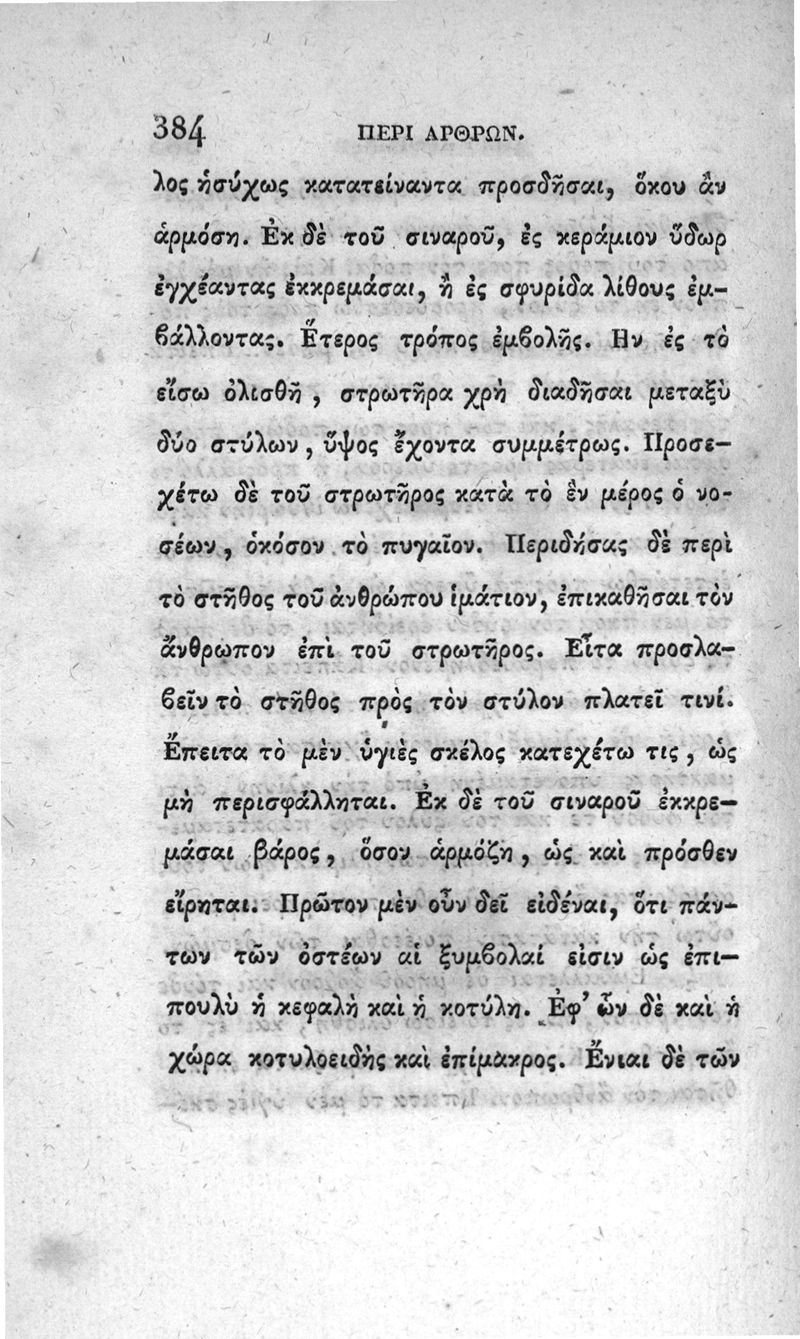 384 ΠΕΡΙ ΑΡΘΡΩΝ.
λος ἡσύχως κατατείναντα προσδῆσαι, ὅκου ἂν
ἁρμόσῃ. Ἐκ δὲ τοῦ σιναροῦ, ἐς κεράμιον ὕδωρ
ἐγχέαντας ἐκκρεμάσαι, ἢ ἐς σφυρίδα λίθους ἐμ-
βάλλοντας. Ἕτερος τρόπος ἐμβολῆς. Ην ἐς τὸ
εἴσω ὀλισθῆ, στρωτῆρα χρὴ διαδῆσαι μεταξὺ
δύο στύλων, ὕψος ἔχοντα συμμέτρως. Προσε-
χέτω δὲ τοῦ στρωτῆρος κατὰ τὸ ἓν μέρος ὁ νο-
σέων, ὁκόσον τὸ πυγαῖον. Περιδήσας δὲ περὶ
τὸ στῆθος τοῦ ἀνθρώπου ἱμάτιον, ἐπικαθῆσαι τὸν
ἄνθρωπον ἐπὶ τοῦ στρωτῆρος. Εἶτα προσλα-
βεῖν τὸ στῆθος πρὸς τὸν στύλον πλατεῖ τινί.
Ἔπειτα τὸ μὲν ὑγιὲς σκέλος κατεχέτω τις, ὡς
μὴ περισφάλληται. Ἐκ δὲ τοῦ σιναροῦ ἐκκρε-
μάσαι βάρος, ὅσον ἁρμόζῃ, ὡς καὶ πρόσθεν
εἴρηται. Πρῶτον μὲν οὖν δεῖ εἰδέναι, ὅτι πάν-
των τῶν ὀστέων αἱ ξυμβολαί εἰσιν ὡς ἐπι-
πουλὺ ἡ κεφαλὴ καὶ ἡ κοτύλη. Ἐφ’ ὧν δὲ καὶ ἡ
χώρα κοτυλοειδὴς καὶ ἐπίμακρος. Ἔνιαι δὲ τῶν